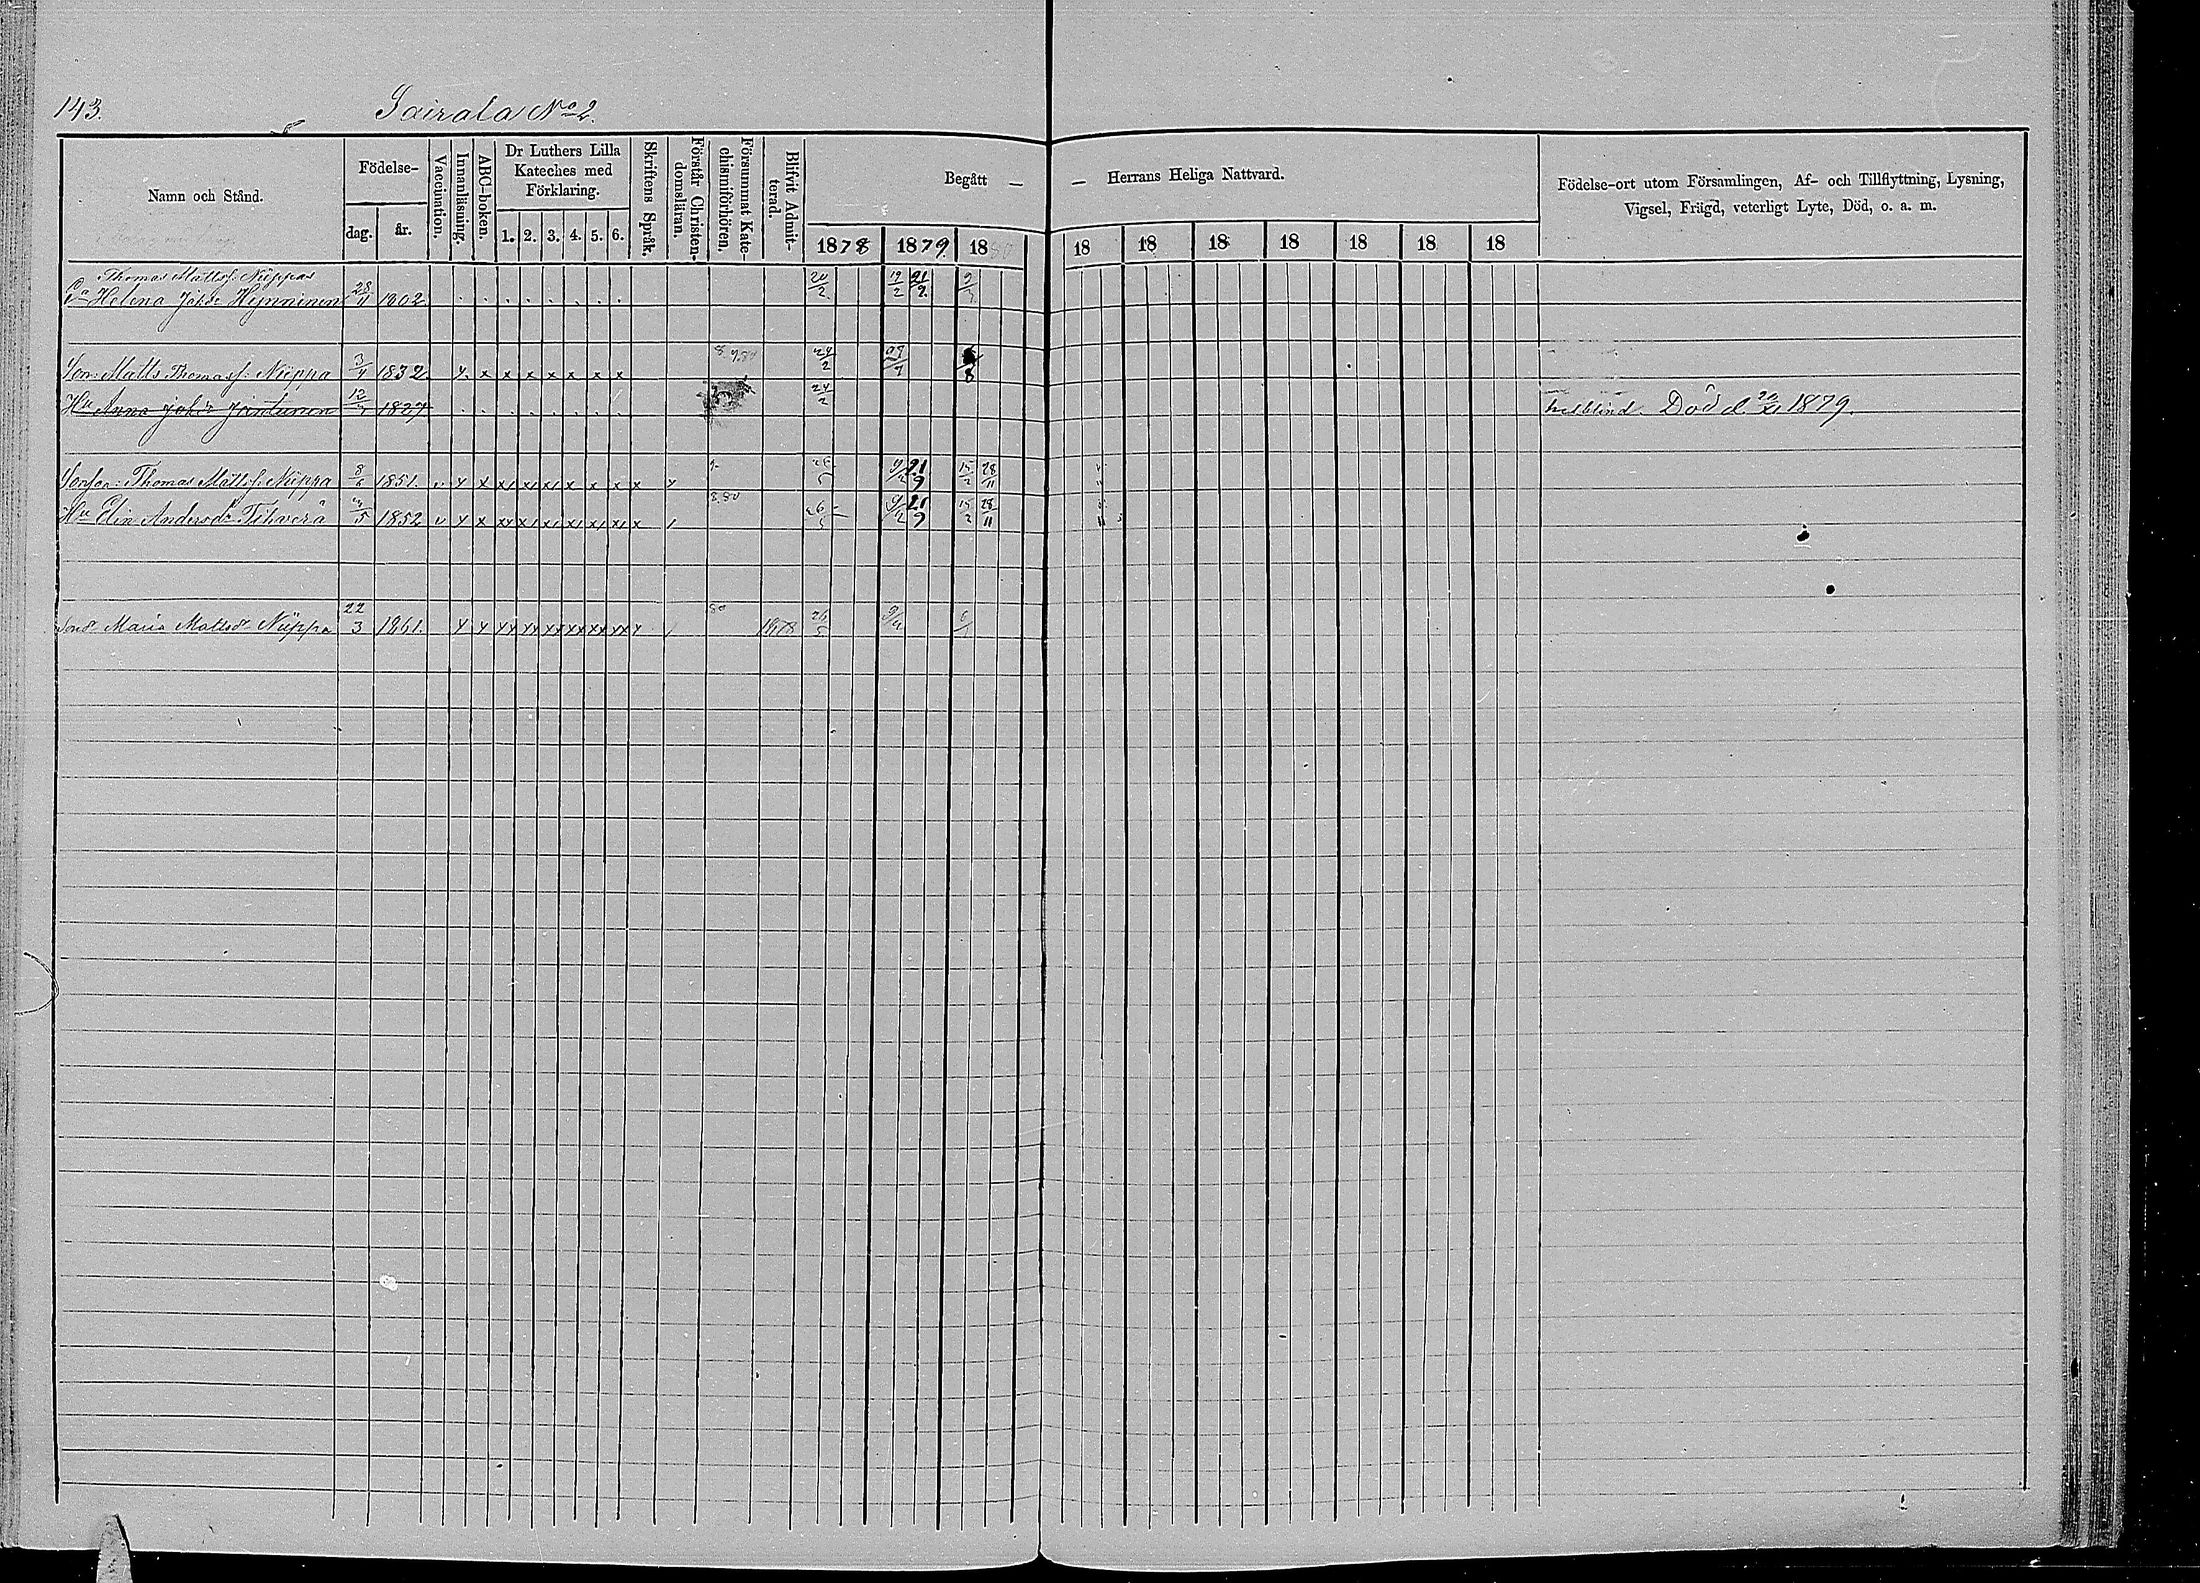 143. Sairala No 2.
Namn och Stånd.
Födelse-
dag. år.
Vaccination.
Innanläsning.
ABC-boken.
Dr Luthers Lilla
Kateches med
Förklaring.
1. 2. 3. 4. 5. 6.
Skriftens Språk.
Förstår Christen-
domsläran.
Försummat Kate-
chismiförhören.
Blifvit Admit-
terad.
Begått — — Herrans Heliga Nattvard.
1878 1879. 1880 18 18 18 18 18 18 18
Födelse-ort utom Församlingen, Af- och Tillflyttning, Lysning,
Vigsel, Frägd, veterligt Lyte, Död, o. a. m.
Thomas Mattss. Nieppas
Helena Johsdr Hynninen 28/11 1802 20/2 19/2 21/9
Son: Matts Thomass. Nieppa 3/11 1832. x x x x x x x x 24/2
Hu Anna Johsdr Jantunen 1827 24/2 helblind. Död d. 20/XI 1879.
Sonson: Thomas Mattss. Nieppa 8/6 1851. v x x x x x x x x x x 9/2 21/9 15/2 28/11
Hu Elin Andersdr Tihverä 1852 v x x xx x x x x x x 9/2 21/9 15/2 28/11
Sondr Maria Mattsdr Nieppa 22/3 1861. x x xx xx xx xx xx xx x 80 1878 26/5